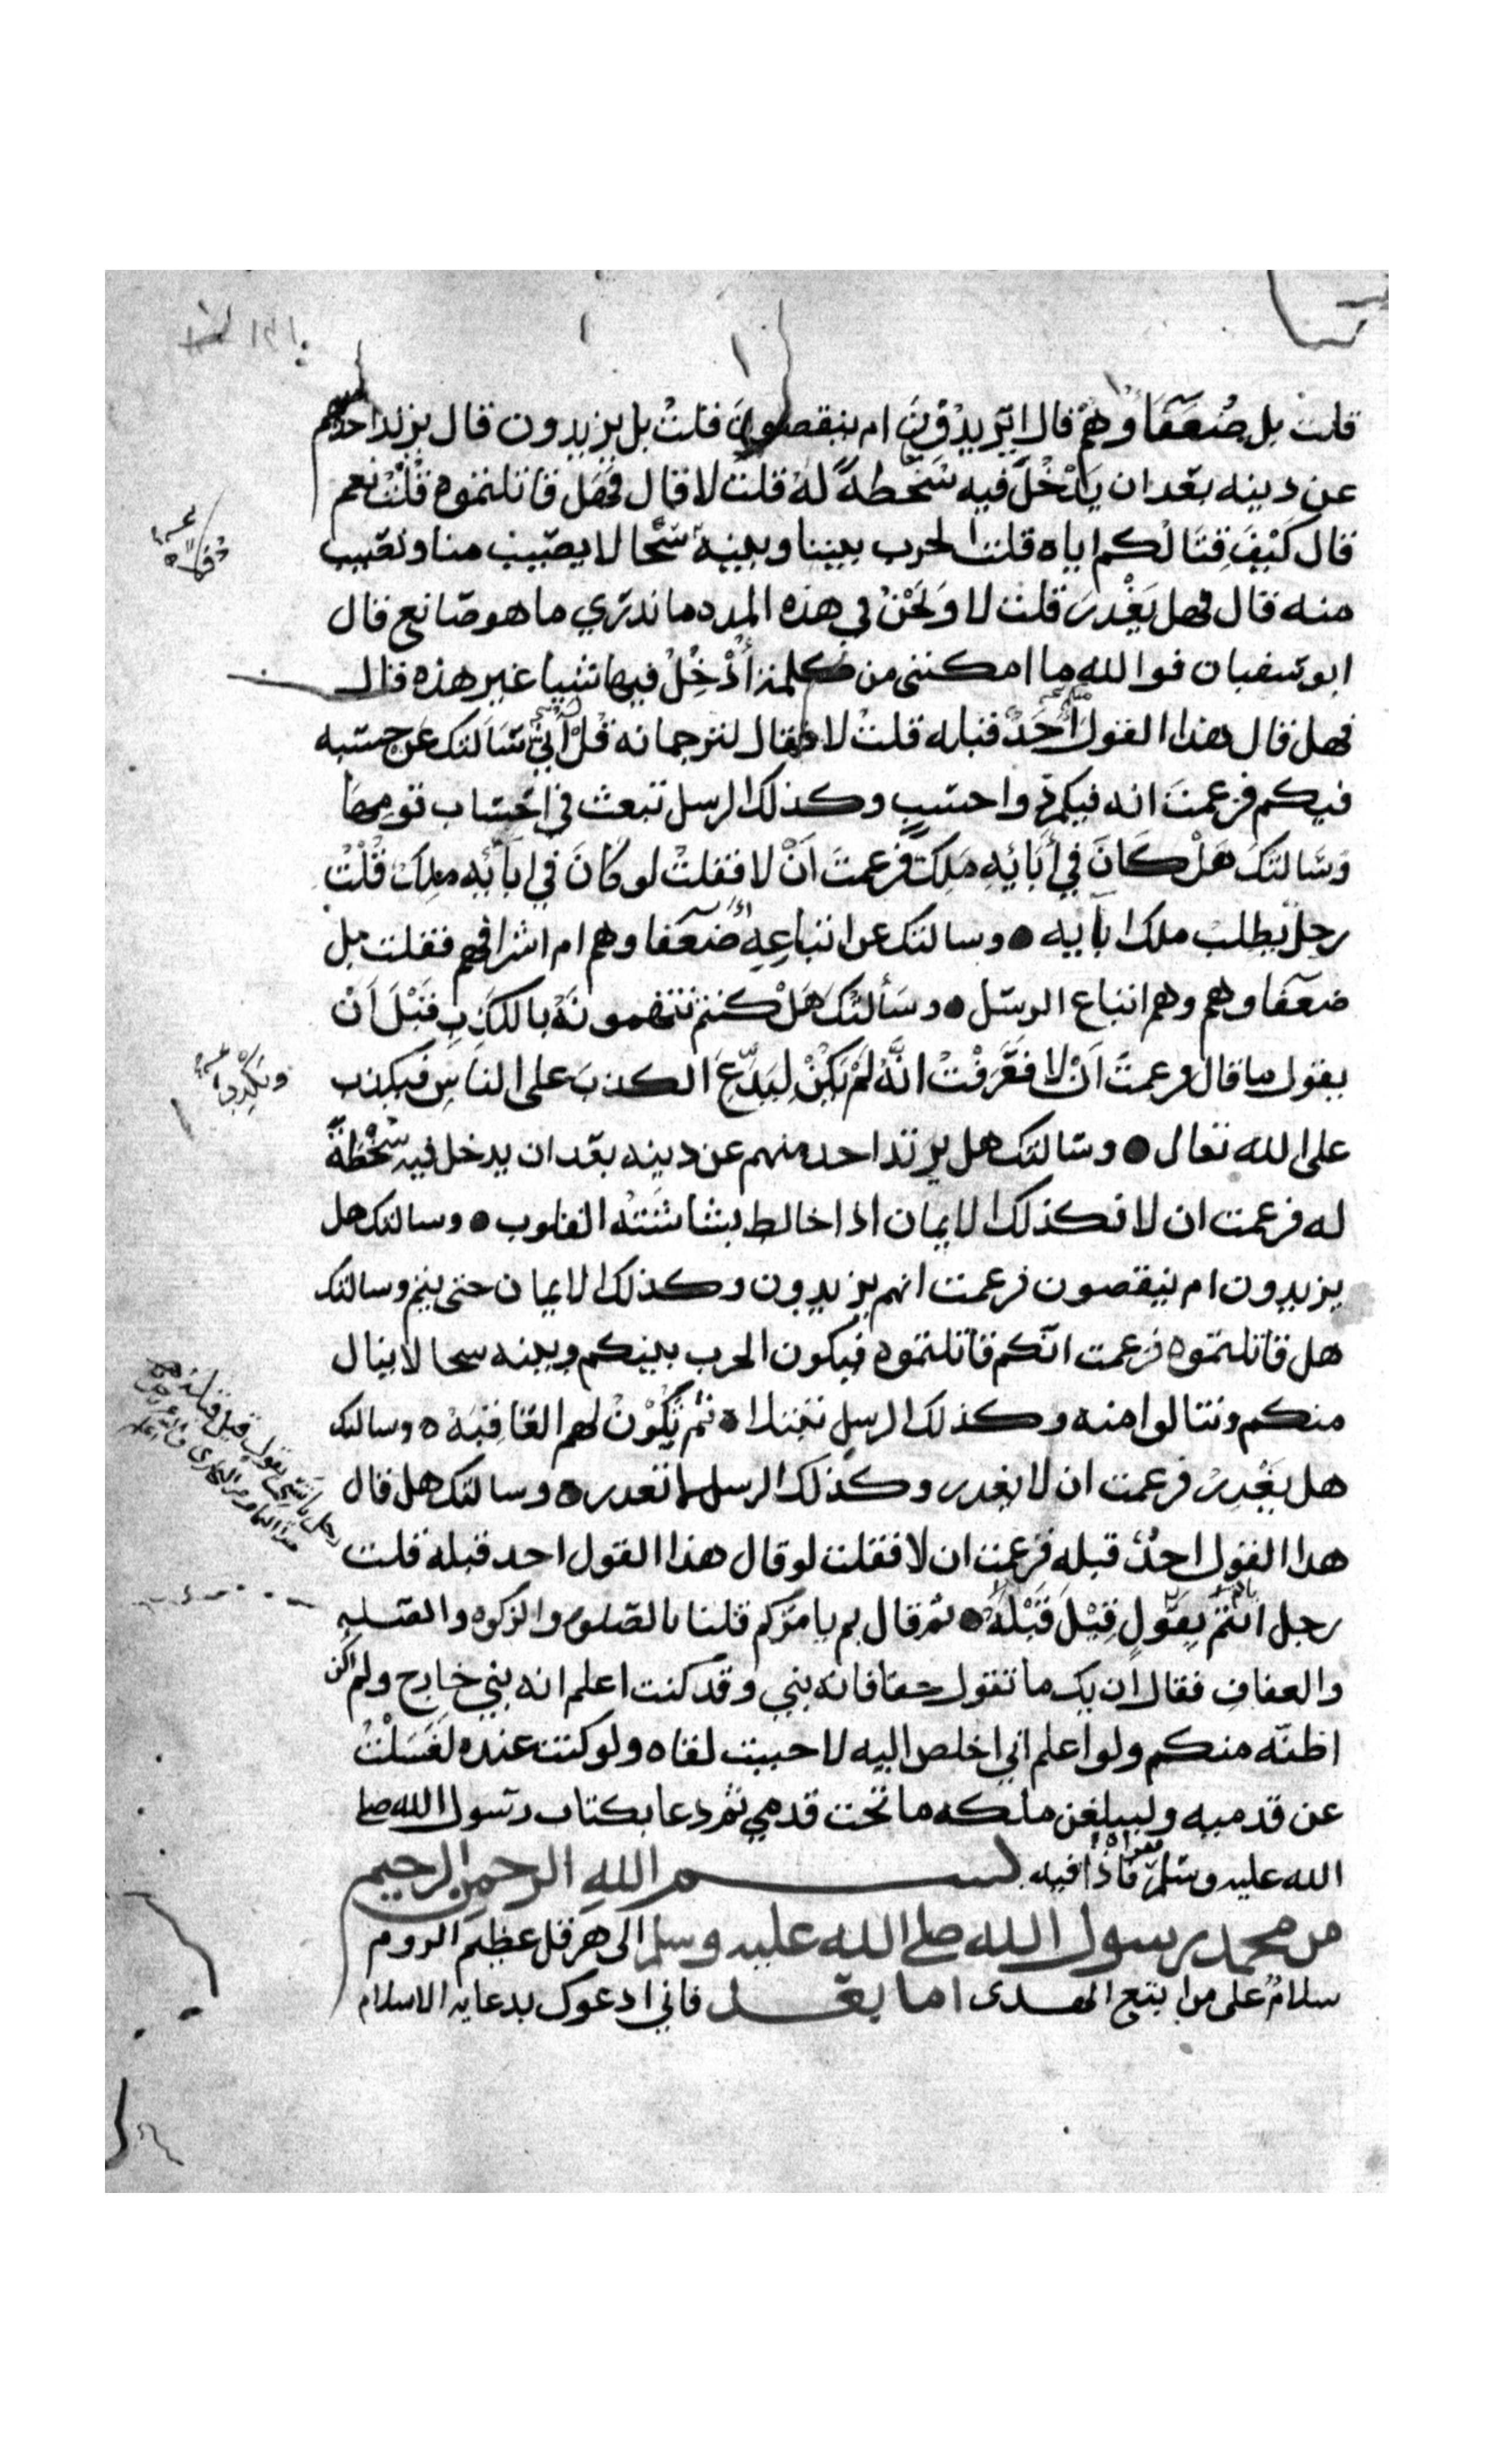 قلت بل ضعفاوهم قال ايزيدون ام ينقصون قلت بل يزيدون قال يرتد احدهم
عن دينه بعد ان يدخل فيه سخطة له قلت لا قال فهل قاتلتموه قلت نعم
قال كيف قتالكم اياه قلت الحرب بيننا وبينه سجالا يصيب منا ونصيب
منه قال فهل يغدر قلت لا ونحن في هذه المده ما ندري ما هو صانع قال
ابو سفيان فوالله ما امكنني من كلمة أدخل فيها شيا غير هذه قال
فهل قال هذا القول أحد قبله قلت لا فقال لترجمانه قل له إني سالتك عن حسبه
فيكم فزعمت انه فيكم ذو احسب وكذلك الرسل تبعث في احساب قومها
وسالتك هل كان في أبائه ملك فزعمت ان لا فقلت لو كان في ابائه ملك قلت
رجل يطلب ملك ابايه وسالتك عن اتباعه أضعفاوهم ام اشرافهم فقلت بل
ضعفاوهم وهم اتباع الرسل وسألتك هل كنتم تتهمونه بالكذب قبل أن
يقول ما قال فزعمت ان لا فعرفت انه لم يكن ليدع الكذب على الناس فيكذب
على الله تعالى وسالتك هل يرتد احد منهم عن دينه بعد ان يدخل فيه سخطة
له فزعمت ان لا فكذلك الايمان اذا خالط بشاشته القلوب وسالتك هل
يزيدون ام ينقصون فزعمت انهم يزيدون وكذلك الايمان حتى يتم وسالتك
هل قاتلتموه فزعمت انكم قاتلتموه فيكون الحرب بينكم وبينه سجالا ينال
منكم وتنالوا منه وكذلك الرسل تبتلا ثم تكون لهم العاقبه وسالتك
هل يغدر فزعمت ان لا يغدر وكذلك الرسل لا تغدر وسالتك هل قال
هذا القول احد قبله فزعمت ان لا فقلت لو قال هذا القول احد قبله قلت
رجل ائتم بقول قيل قبله ثم قال بم يامركم قلنا بالصلوه والزكوه والصله
والعفاف فقال ان يك ما تقول حقا فانه نبي وقد كنت اعلم انه نبي خارج ولم اكن
اظنه منكم ولو اعلم اني اخلص اليه لاحببت لقاه ولو كنت عنده لغسلت
عن قدميه وليبلغن ملكه ما تحت قدمي ثم دعا بكتاب رسول الله صلى
الله عليه وسلم فقراه فاذا فيه بسم الله الرحمن الرحيم
من محمد رسول الله صلى الله عليه وسلم الى هرقل عظيم الروم
سلام على من ابتع الهدى اما بعد فاني ادعوك بدعايه الاسلام
ويكذب